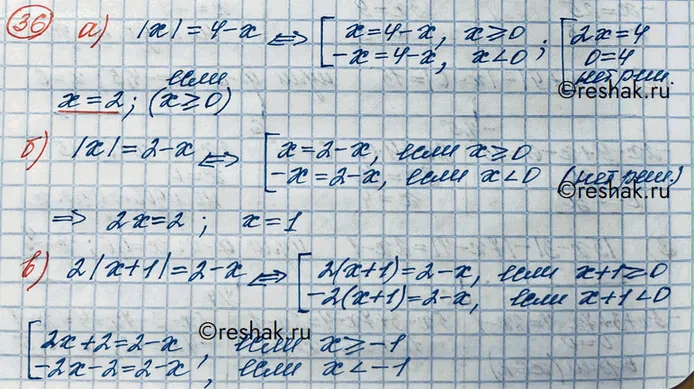 36 а) |x|=4-x ⟺ [ x=4-x, x≥0 ; [ 2x=4
-x=4-x, x<0 0=4
если нет реш.
x=2; (x≥0) ©reshak.ru
б) |x|=2-x ⟺ [ x=2-x, если x≥0
-x=2-x, если x<0 (нет реш.)
©reshak.ru
⟹ 2x=2; x=1
в) 2|x+1|=2-x ⟺ [ 2(x+1)=2-x, если x+1≥0
-2(x+1)=2-x, если x+1<0
©reshak.ru
[ 2x+2=2-x, если x≥-1
-2x-2=2-x, если x<-1